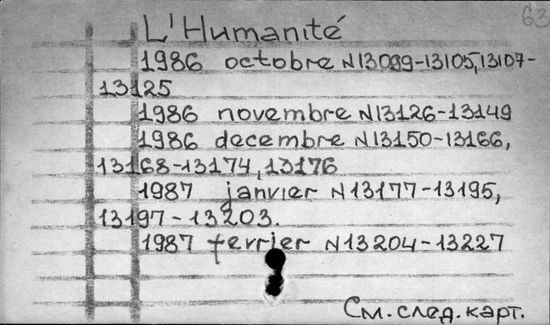 63
L'Humanité
1986 octobre N13099-13105,13107-
13125
1986 novembre N13126-13149
1986 decembre N13150-13166,
13168-13174,13176
1987 janvier N13177-13195,
13197-13203.
1987 fevrier N13204-13227
См. след. карт.